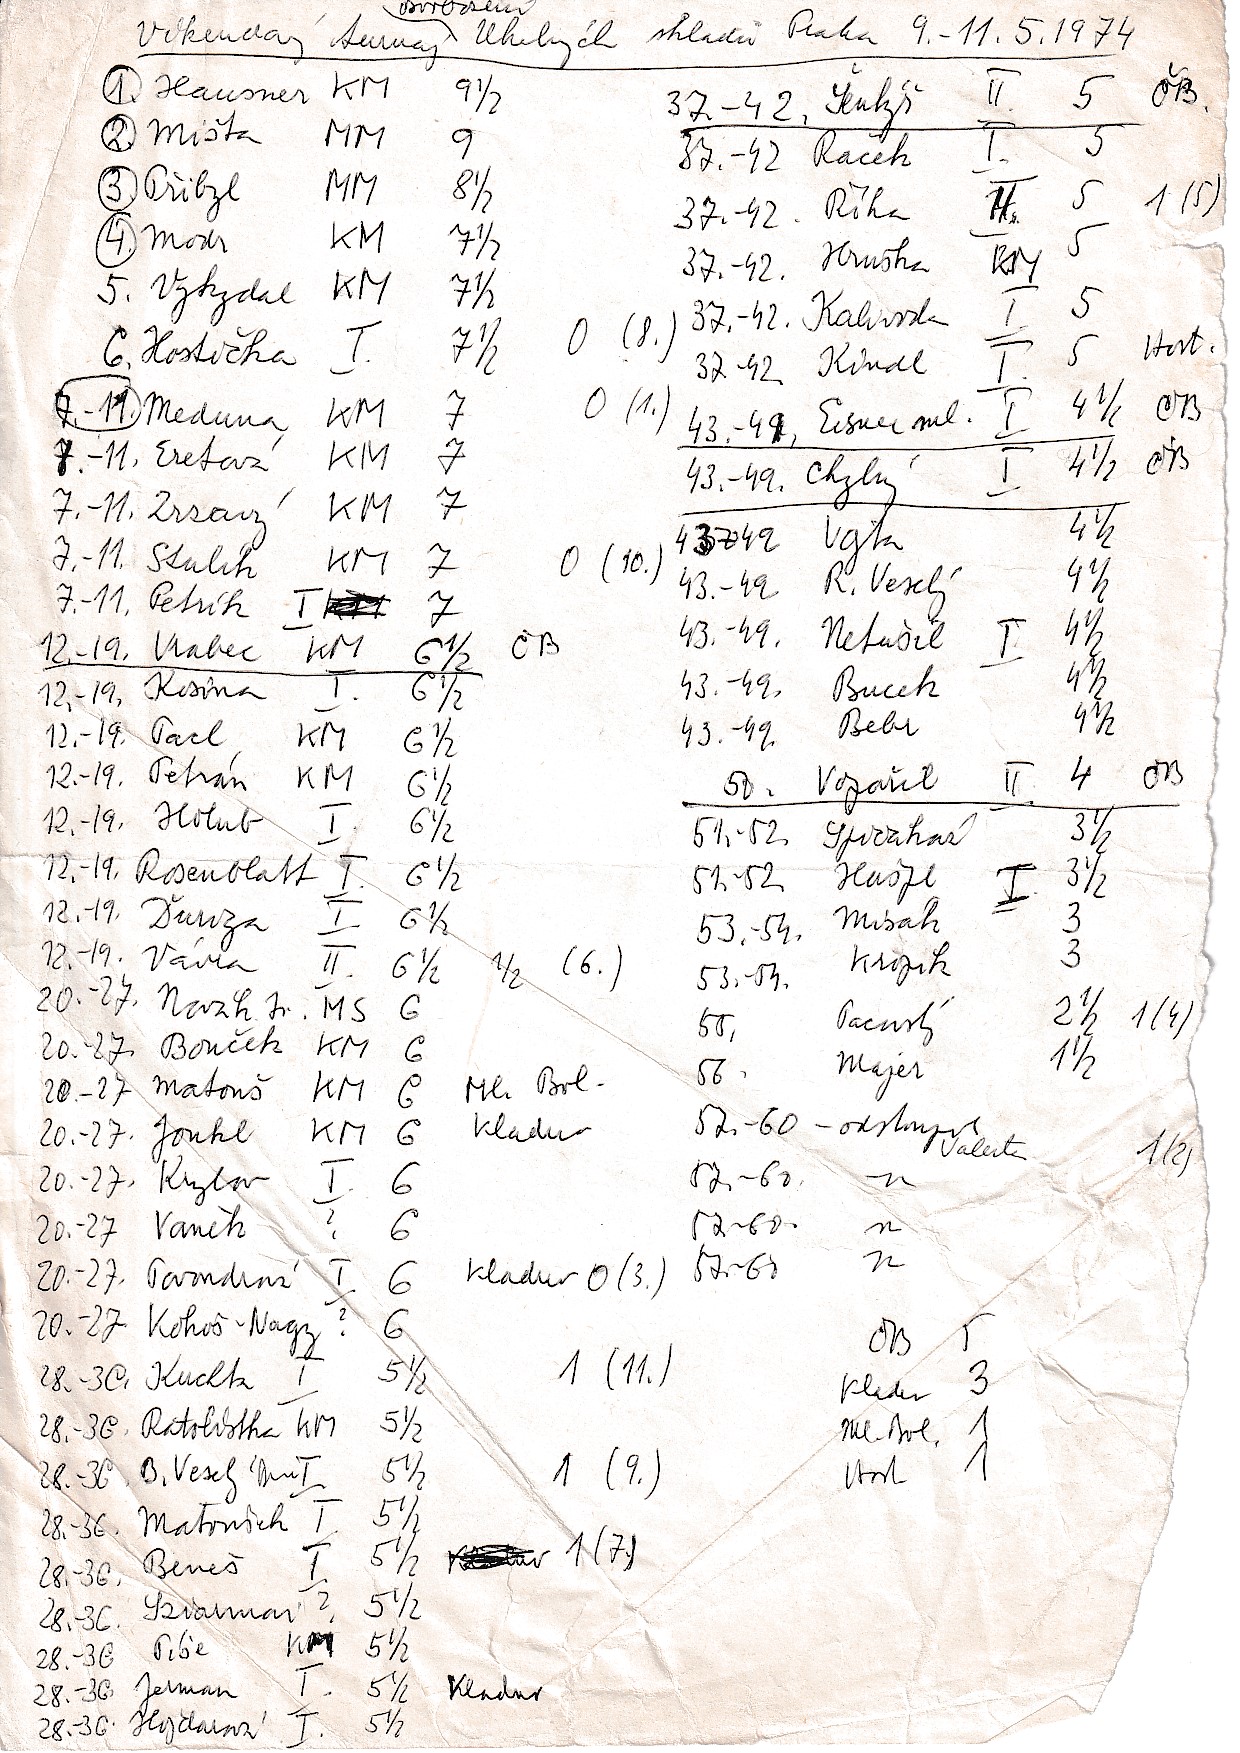 osvobození
Víkendový turnaj Uhelných skladů Praha 9.-11.5.1974
1. Hausner KM 9½
2. Mišta MM 9
3. Přibyl MM 8½
4. Modr KM 7½
5. Vykydal KM 7½
6. Hostička I. 7½ 0 (8.)
7.-11. Meduna KM 7 0 (1.)
7.-11. Eretová KM 7
7.-11. Zrzavý KM 7
7.-11. Stulík KM 7 0 (10.)
7.-11. Petrík I 7
12.-19. Vrabec KM 6½ ČB
12.-19. Kosina I. 6½
12.-19. Pacl KM 6½
12.-19. Petrán KM 6½
12.-19. Holub I. 6½
12.-19. Rosenblatt I. 6½
12.-19. Ďuriza I 6½
12.-19. Vávra II. 6½ ½ (6.)
20.-27. Novák Jr. MS 6
20.-27. Bouček KM 6
20.-27 Matouš KM 6 Ml. Bol.
20.-27. Jonkl KM 6 Kladno
20.-27. Krylov I. 6
20.-27 Vaněk ? 6
20.-27. Povondrová I. 6 Kladno 0 (3.)
20.-27 Kohoš-Nagy ? 6
28.-36. Kuchta I 5½ 1 (11.)
28.-36. Ratolístka KM 5½
28.-36. B. Veselý I. 5½ 1 (9.)
28.-36. Matoušek I. 5½
28.-36. Beneš I. 5½ 1 (7.)
28.-36. ?. 5½
28.-36 Píše KM 5½
28.-36 Jerman I. 5½ Kladno
28.-36. Hojdarová I. 5½
37.-42. II. 5 ČB.
37.-42 Raček I. 5
37.-42. Říha II. 5 1 (5)
37.-42. Hruška KM 5
37.-42. Kalivoda I 5
37.-42. Kindl I. 5 Host.
43.-49. Eisner ml. I 4½ ČB
43.-49. Chylý I 4½ ČB
43.-49 Vojta 4½
43.-49 R. Veselý 4½
43.-49. Netušil I 4½
43.-49. Bucek 4½
43.-49. Bebr 4½
50. Vopařil II 4 ČB
51.-52. 3½
51.-52. Hušpl I 3½
53.-54. Misák 3
53.-54. Kropík 3
55. Pacovský 2½ 1 (4)
56. Majer 1½
57.-60 - odstoupil
Valenta 1 (2)
57.-60. -"-
57.-60. "
57.-60 "
ČB 5
Kladno 3
Ml. Bol. 1
Host 1